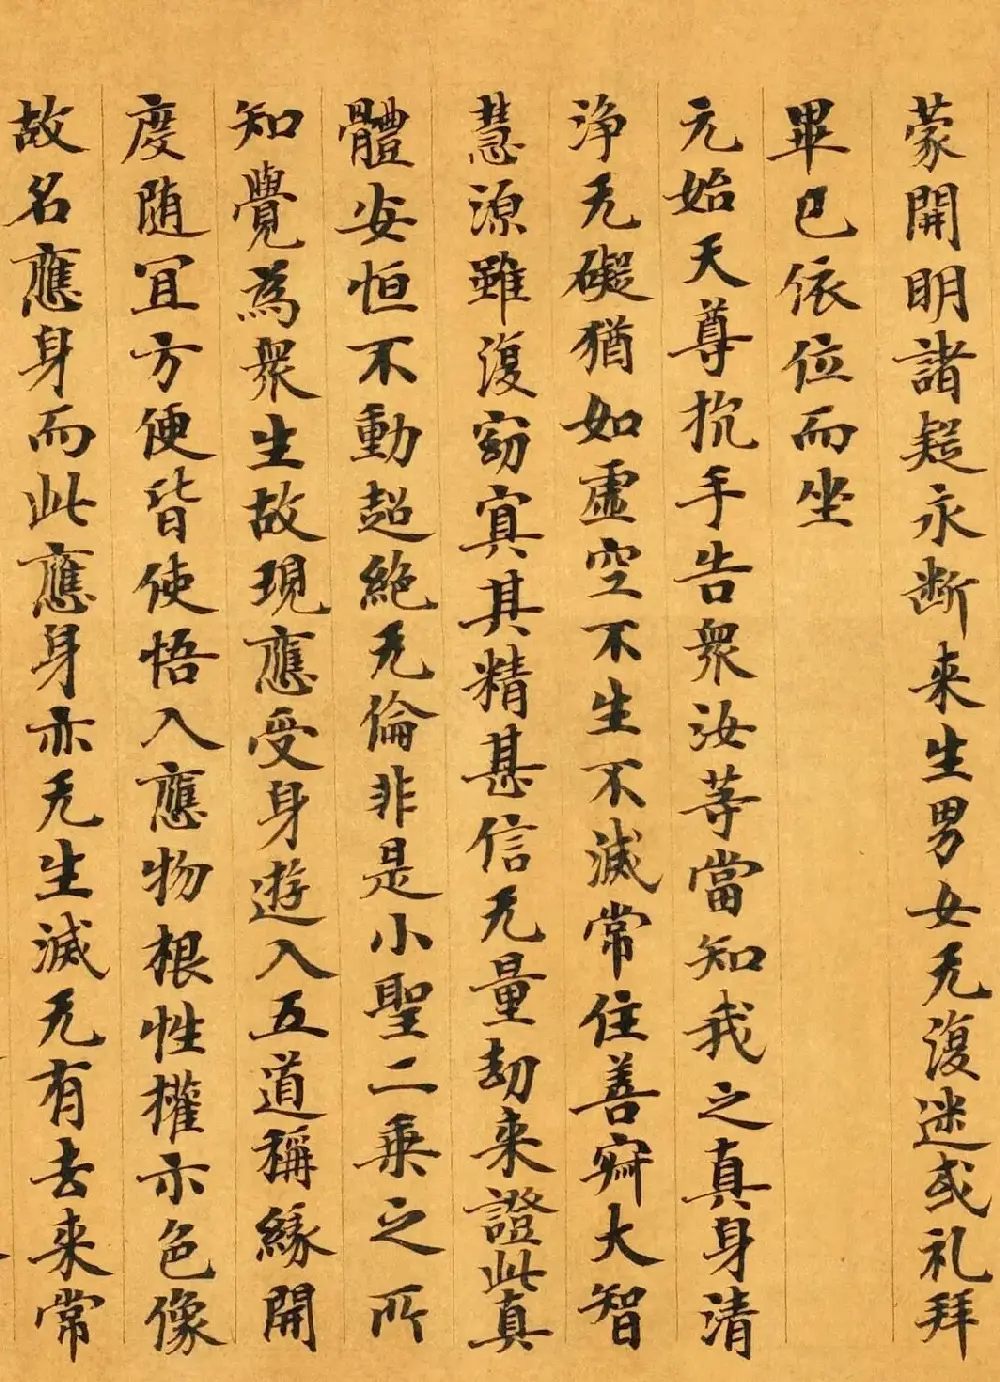 蒙開明諸疑永断来生男女无復迷或礼拜
畢已依位而坐
元始天尊抗手告衆汝等當知我之真身清
浄无礙猶如虚空不生不滅常住善寂大智
慧源雖復窈冥其精甚信无量劫来證此真
體安恒不動超絶无倫非是小聖二乗之所
知覺為衆生故現應受身遊入五道稱緣開
度随宜方便皆使悟入應物根性權示色像
故名應身而此應身亦无生滅无有去来常